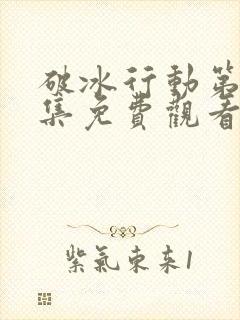 破冰行動第
集免費觀看
紫氣東來1